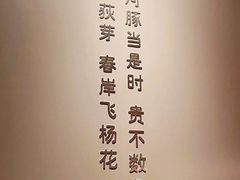 荻芽 春岸飞杨花
河豚当是时 贵不数